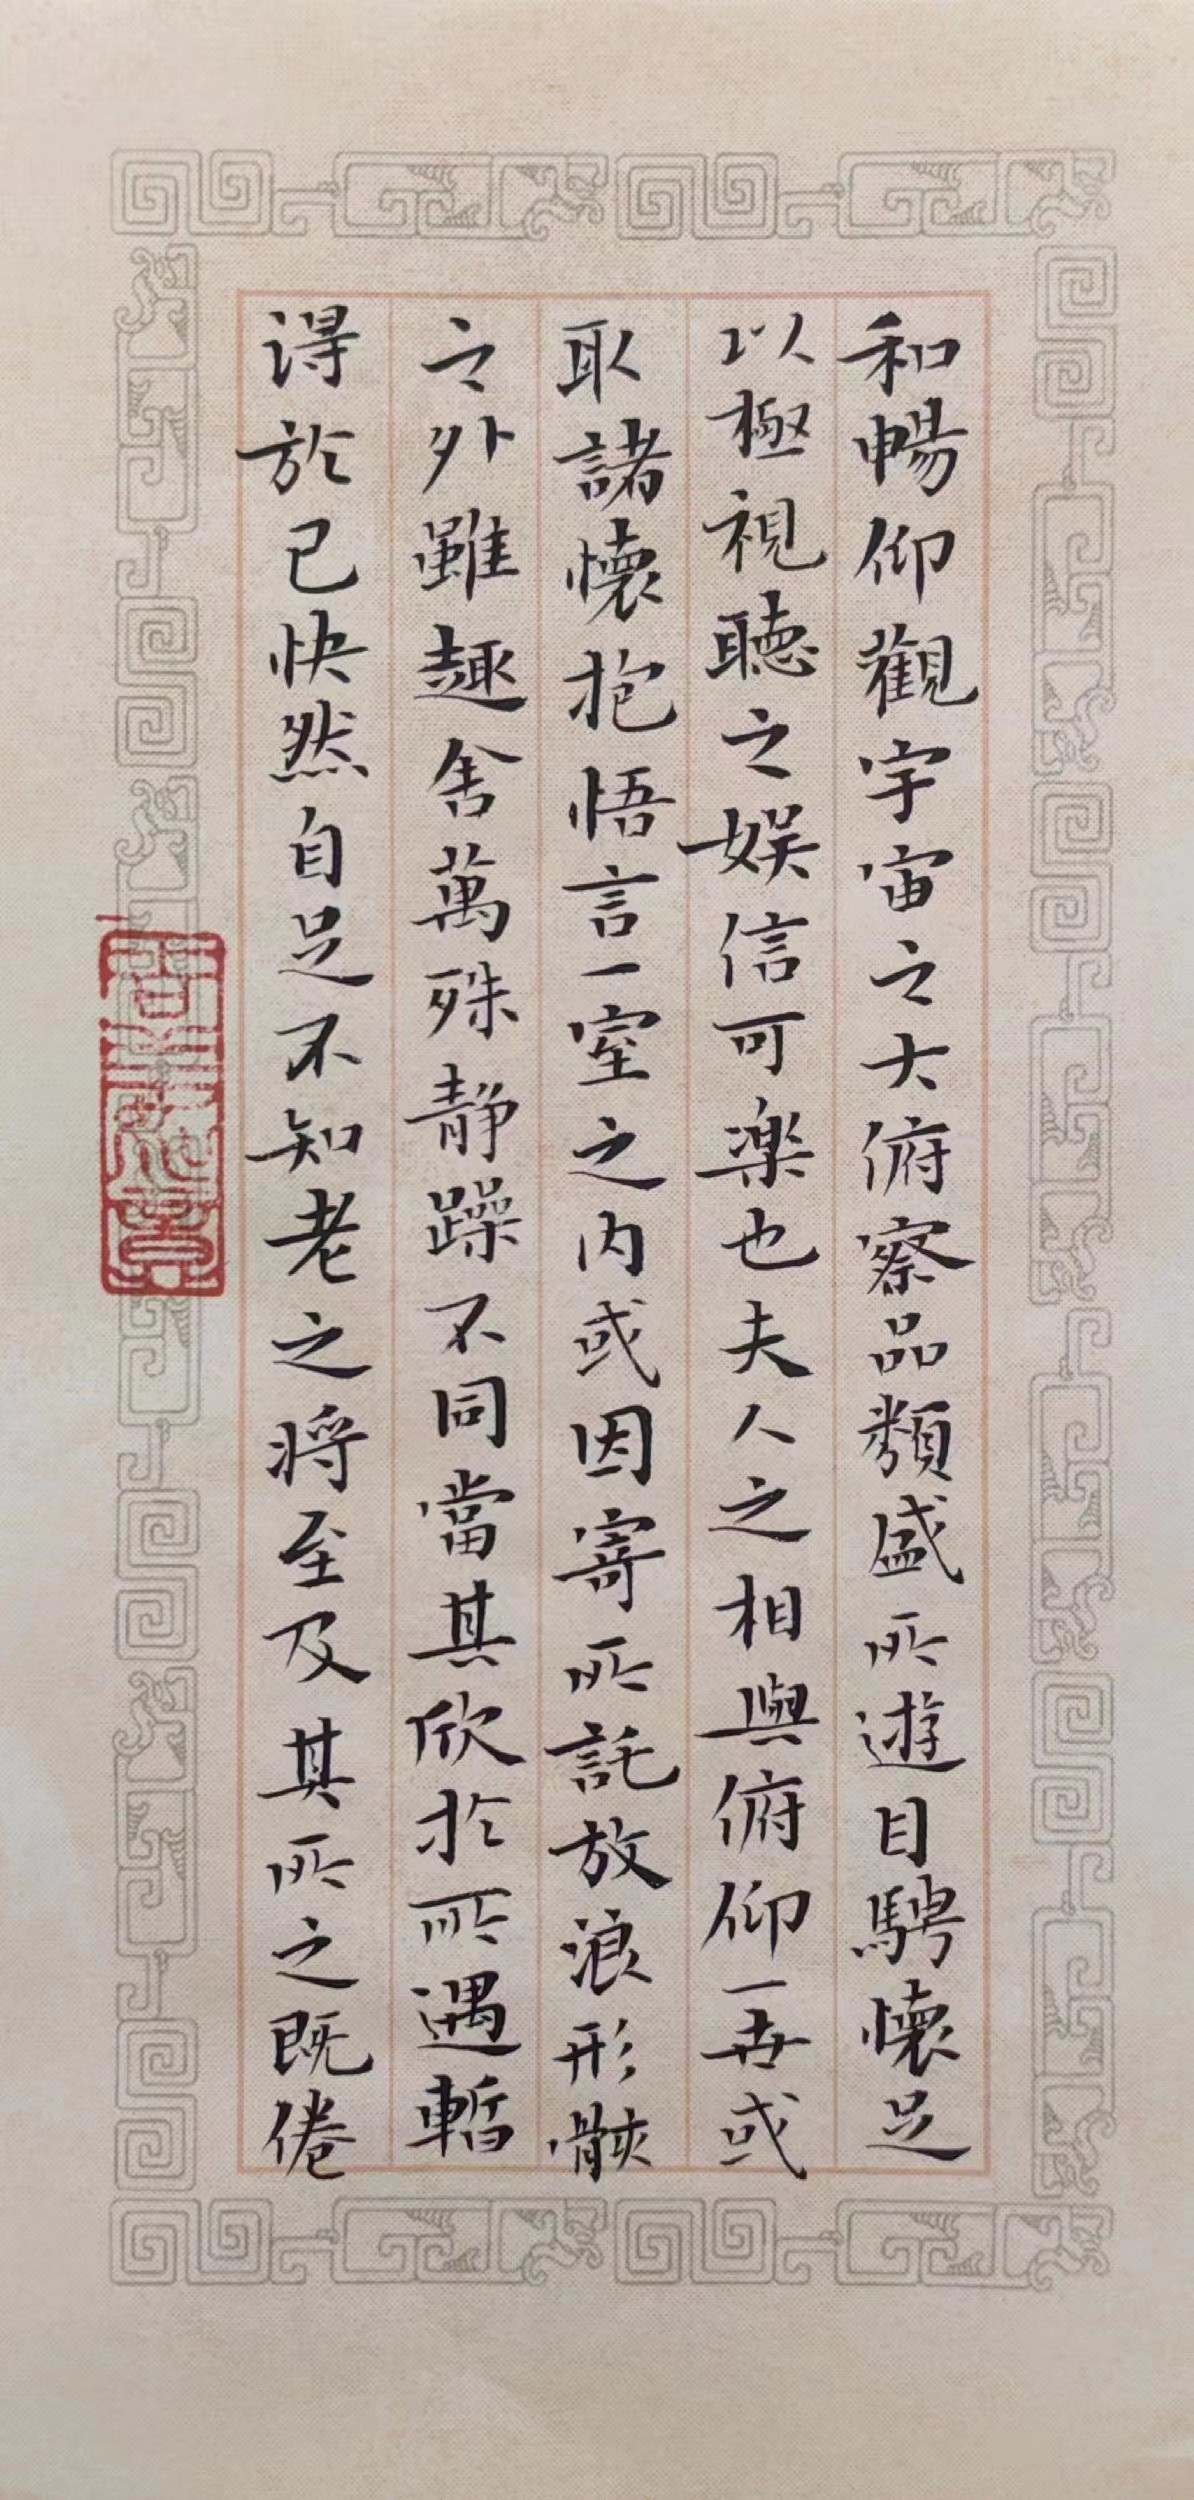 和暢仰觀宇宙之大俯察品類盛所遊目騁懷足
以極視聽之娱信可樂也夫人之相與俯仰一世或
取諸懷抱悟言一室之内或因寄所託放浪形骸
之外雖趣舍萬殊静躁不同當其欣於所遇暫
得於己快然自足不知老之将至及其所之既倦